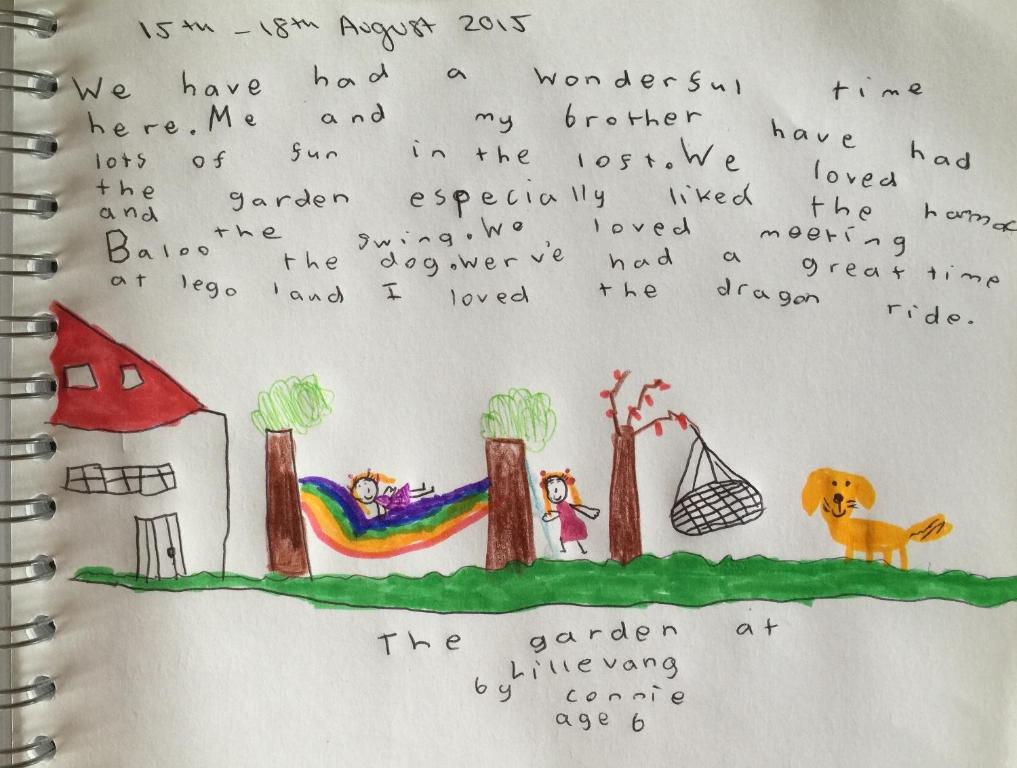 15th - 18th August 2015
We have had a wonderful time
here. Me and my brother have had
lots of fun in the lost. We loved
the garden especially liked the hamoc
and the swing. We loved meering
Baloo the dog. wer v'e had a great time
at lego land I loved the dragon ride.
The garden at
Lillevang
by connie
age 6